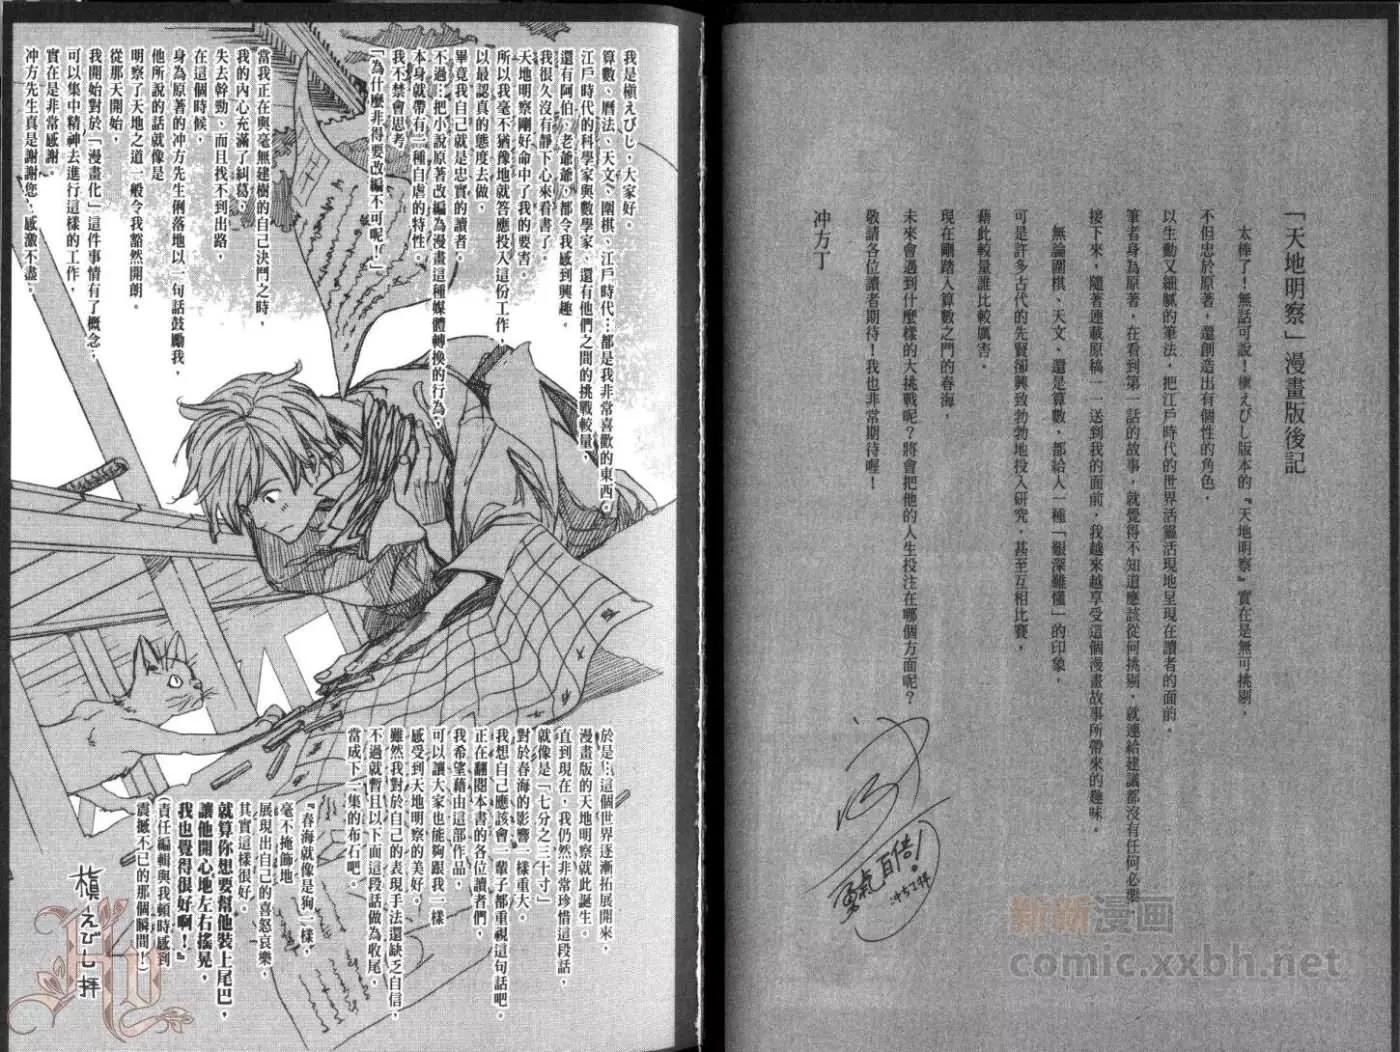 「天地明察」漫畫版後記
太棒了！無話可說！槇えびし版本的『天地明察』實在是無可挑剔，
不但忠於原著，還創造出有個性的角色，
以生動又細膩的筆法，把江戶時代的世界活靈活現地呈現在讀者的面前。
筆者身為原著，在看到第一話的故事，就覺得不知道應該從何挑剔，就連給建議都沒有任何必要
接下來，隨著連載原稿一一送到我的面前，我越來越享受這個漫畫故事所帶來的趣味。
無論圍棋、天文、還是算數，都給人一種「艱深難懂」的印象，
可是許多古代的先賢卻興致勃勃地投入研究，甚至互相比賽，
藉此較量誰比較厲害。
現在剛踏入算數之門的春海，
未來會遇到什麼樣的大挑戰呢？將會把他的人生投注在哪個方面呢？
敬請各位讀者期待！我也非常期待喔！
冲方丁
勇氣百倍！
冲方丁拜
新新漫画
comic.xxbh.net
我是槇えびし，大家好。
算數、曆法、天文、圍棋、江戶時代…都是我非常喜歡的東西。
江戶時代的科學家與數學家、還有他們之間的挑戰較量，
還有阿伯、老爺爺，都令我感到興趣。
我很久沒有靜下心來看書了。
天地明察剛好命中了我的要害。
所以我毫不猶豫地就答應投入這份工作，
以最認真的態度去做，
畢竟我自己就是忠實的讀者。
不過…把小說原著改編為漫畫這種媒體轉換的行為，
本身就帶有一種自虐的特性。
我不禁會思考，
「為什麼非得要改編不可呢！」
當我正在與毫無建樹的自己決鬥之時，
我的內心充滿了糾葛，
失去幹勁、而且找不到出路，
在這個時候，
身為原著的冲方先生俐落地以一句話鼓勵我，
他所說的話就像是
明察了天地之道一般令我豁然開朗。
從那天開始，
我開始對於「漫畫化」這件事情有了概念…
可以集中精神去進行這樣的工作，
實在是非常感謝。
冲方先生真是謝謝您，感激不盡。
於是…這個世界逐漸拓展開來，
漫畫版的天地明察就此誕生。
直到現在，我仍然非常珍惜這段話，
就像是「七分之三十寸」
對於春海的影響一樣重大。
我想自己應該會一輩子都重視這句話吧。
正在翻閱本書的各位讀者們，
我希望藉由這部作品，
可以讓大家也能夠跟我一樣
感受到天地明察的美好。
雖然我對於自己的表現手法還缺乏自信，
不過就暫且以下面這段話做為收尾，
當成下一集的布石吧。
『春海就像是狗一樣，
毫不掩飾地
展現出自己的喜怒哀樂，
其實這樣很好。
就算你想要幫他裝上尾巴，
讓他開心地左右搖晃，
我也覺得很好啊！』
責任編輯與我頓時感到
震撼不已的那個瞬間！）
槇えびし拜